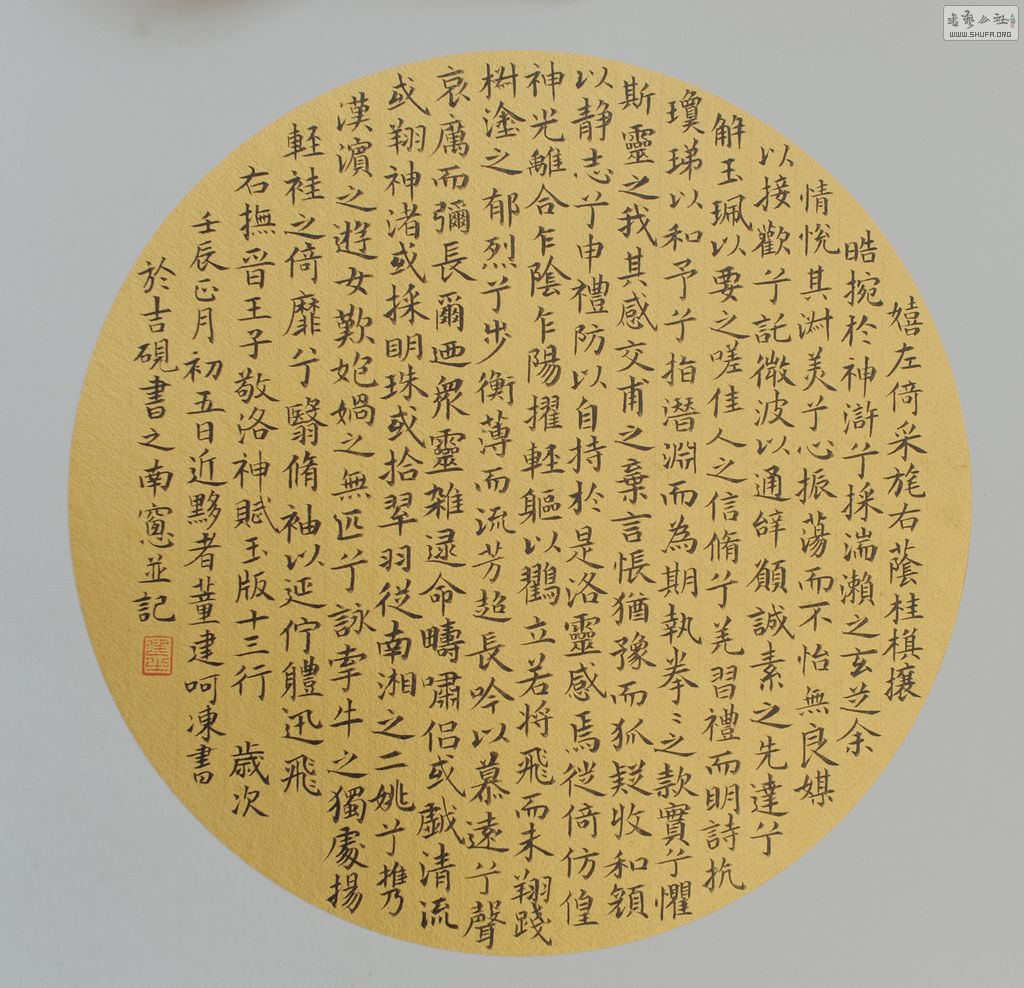 嬉左倚采旄右蔭桂棋攘
晧捥於神滸兮採湍瀨之玄芝余
情悅其淑美兮心振蕩而不怡無良媒
以接歡兮託微波以通辝願誠素之先達兮
解玉珮以要之嗟佳人之信脩兮羌習禮而明詩抗
瓊珶以和予兮指潛淵而為期執拳〻之款實兮懼
斯靈之我其感交甫之棄言悵猶豫而狐疑收和顏
以静志兮申禮防以自持於是洛靈感焉從倚仿偟
神光離合乍陰乍陽擢輕軀以鸖立若將飛而未翔踐
椒塗之郁烈兮步衡薄而流芳超長吟以慕遠兮聲
哀厲而彌長爾迺衆靈雜遝命疇嘯侶或戲清流
或翔神渚或採明珠或拾翠羽從南湘之二姚兮攜
漢濱之遊女歎炮媧之無匹兮詠牽牛之獨處揚
輕袿之倚靡兮翳脩袖以延佇體迅飛
右撫晉王子敬洛神賦玉版十三行 歲次
壬辰正月初五日近黟者董建呵凍書
於吉硯書之南窻並記
書藝公社
WWW.SHUFA.ORG